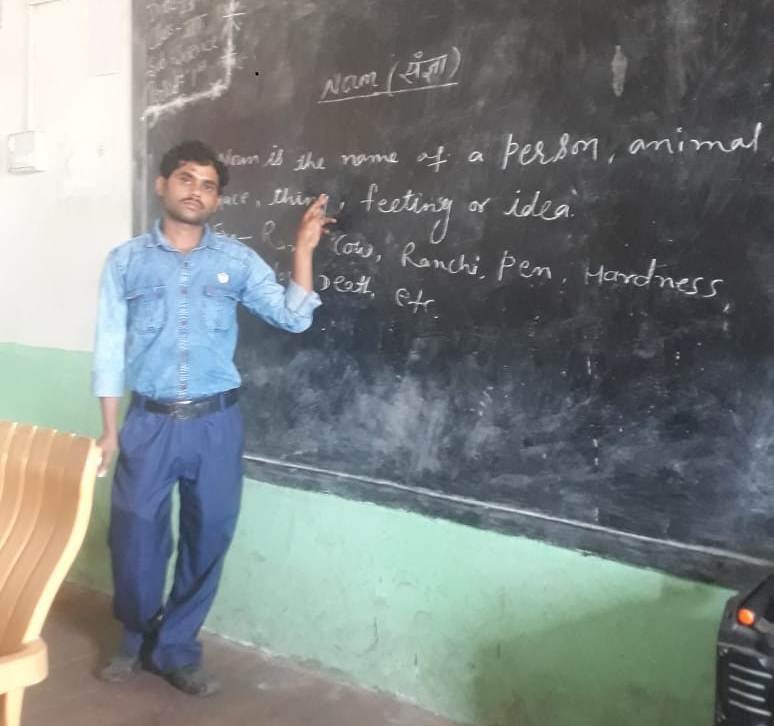 Noun (संज्ञा)
Noun is the name of a person, animal
thing, feeting or idea.
Ex- Cow, Ranchi, Pen, Hardness,
Death, etc.